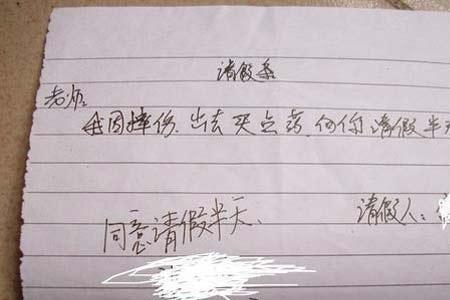 请假条
老师:
我因摔伤.出去买点药.向你请假半天
请假人:
同意请假半天.